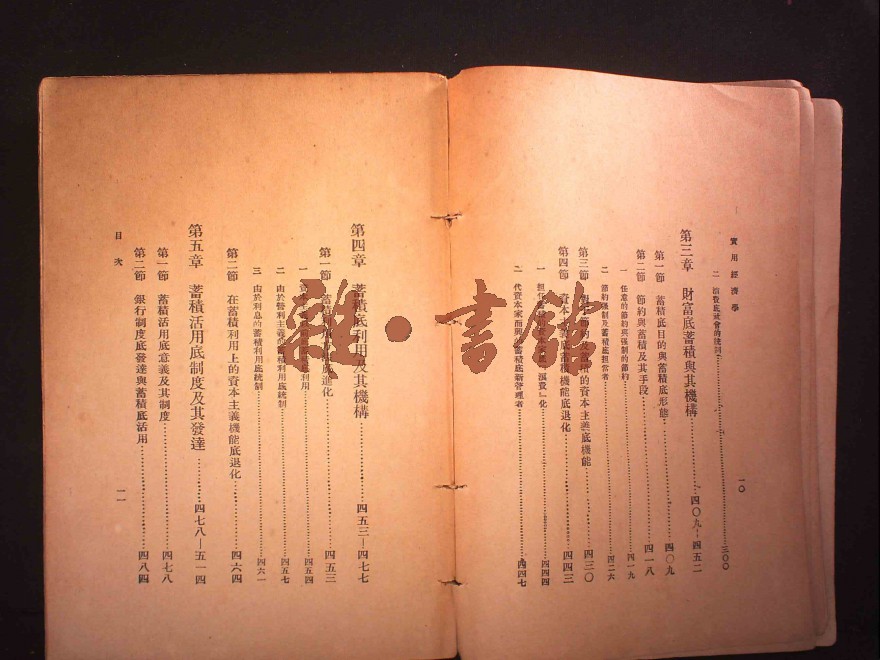 實用經濟學
一〇
二 消費底社會的統制……三〇〇
第三章 財富底蓄積與其機構……四〇九—四五二
第一節 蓄積底目的與蓄積底形態……四〇九
第二節 節約與蓄積及其手段……四一八
一 任意的節約與强制的節約……四一九
二 節約强制及蓄積底担當者……四二六
第三節 節約及蓄積的資本主義底機能……四三〇
第四節 資本家底蓄積機能底退化……四四三
一 資本底『浪費』化……四四四
二 代資本家而興的蓄積底新管理者……四四七
第四章 蓄積底利用及其機構……四五三—四七七
第一節 蓄積利用底進化……四五三
一 資本主義利用……四五四
二 由於營利主義的蓄積利用底統制……四五七
三 由於利息的蓄積利用底統制……四六一
第二節 在蓄積利用上的資本主義機能底退化……四六四
第五章 蓄積活用底制度及其發達……四七八—五一四
第一節 蓄積活用底意義及其制度……四七八
第二節 銀行制度底發達與蓄積底活用……四八四
目次
一一
雜·書館